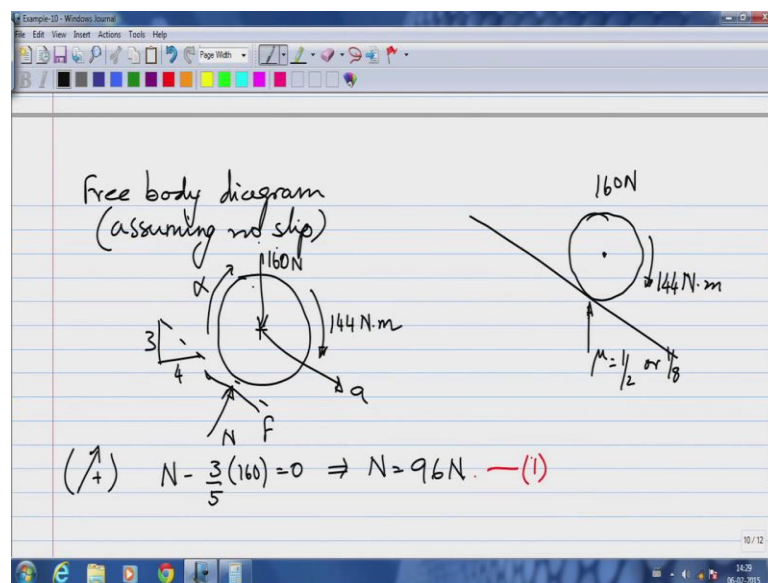 Example-10 - Windows Journal
File Edit View Insert Actions Tools Help
Page Width
B I
Free body diagram
(assuming no slip)
160N
α
144 N·m
3
4
a
N F
160N
144 N·m
μ=1/2 or 1/8
(↗+) N - 3/5 (160) = 0 ⇒ N = 96 N. —(1)
10 / 12
14:29
06-02-2015